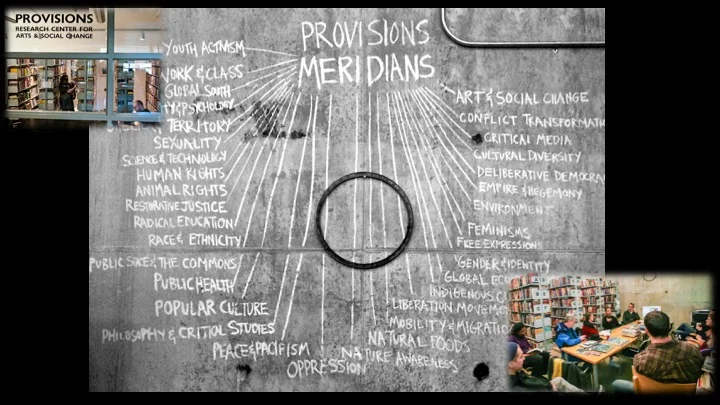 PROVISIONS
RESEARCH CENTER FOR
ARTS & SOCIAL CHANGE
PROVISIONS
MERIDIANS
YOUTH ACTIVISM
ORK & CLASS
GLOBAL SOUTH
PSYCHOLOGY
TERRITORY
SEXUALITY
SCIENCE & TECHNOLOGY
HUMAN RIGHTS
ANIMAL RIGHTS
RESTORATIVE JUSTICE
RADICAL EDUCATION
RACE & ETHNICITY
PUBLIC SPACE & THE COMMONS
PUBLIC HEALTH
POPULAR CULTURE
PHILOSOPHY & CRITICAL STUDIES
PEACE & PACIFISM
OPPRESSION
ART & SOCIAL CHANGE
CONFLICT TRANSFORMATI
CRITICAL MEDIA
CULTURAL DIVERSITY
DELIBERATIVE DEMOCRA
EMPIRE & HEGEMONY
ENVIRONMENT
FEMINISMS
FREE EXPRESSION
GENDER & IDENTITY
GLOBAL EC
INDIGENOUS C
LIBERATION MOVEME
MOBILITY & MIGRATIO
NATURAL FOODS
NATURE AWARENESS